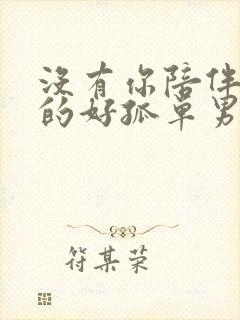 沒有你陪伴
的好孤單男
符某荣